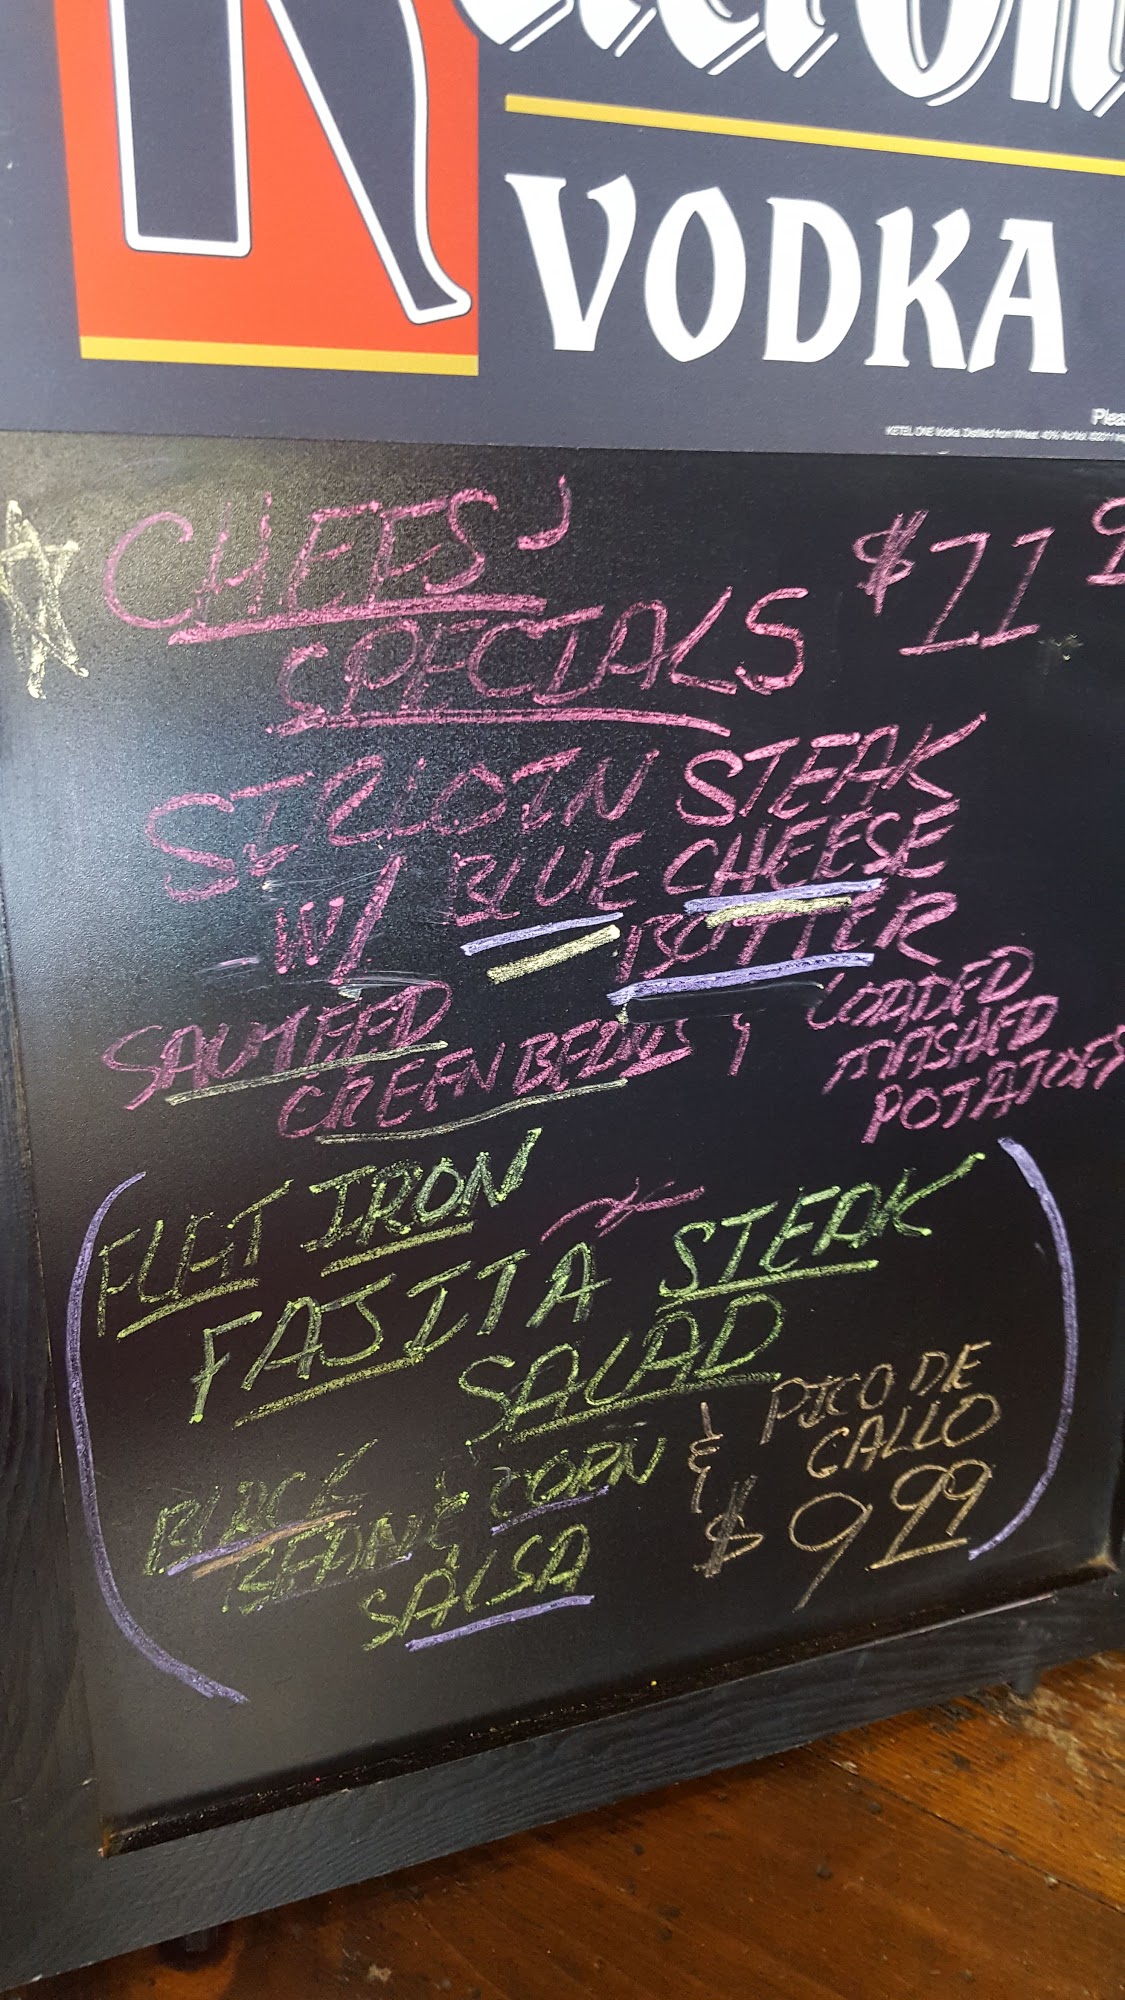 VODKA
Pleas
KETEL ONE Vodka. Distilled from Wheat. 40% Alc/Vol. ©2011
CHEFS' $11 9
SPECIALS
SIRLOIN STEAK
W/ BLUE CHEESE
BUTTER
SAUTEED
GREEN BEANS & LOADED
MASHED
POTATOES
FLAT IRON
FAJITA STEAK
SALAD
BLACK
BEAN & CORN
SALSA
& PICO DE
GALLO
$ 9.99